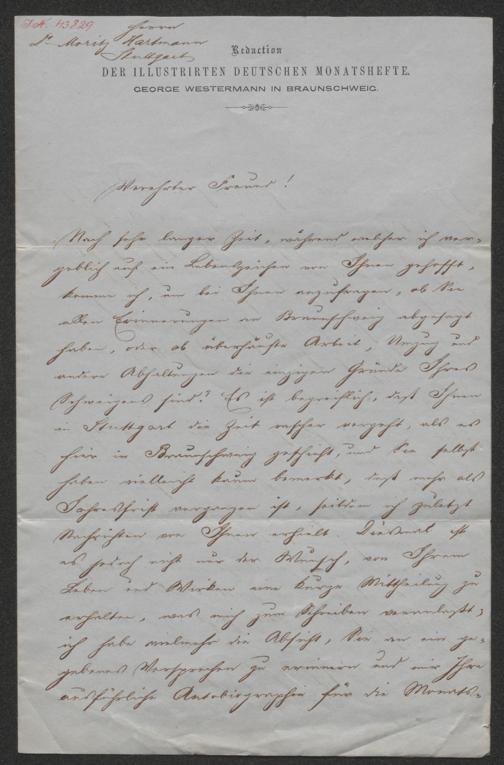 I.N. 43829
Herrn
Dr Moritz Hartmann
Stuttgart
Redaction
DER ILLUSTRIRTEN DEUTSCHEN MONATSHEFTE.
GEORGE WESTERMANN IN BRAUNSCHWEIG.
Verehrter Freund!
Nach sehr langer Zeit, während welcher ich ver-
geblich auf ein Lebenszeichen von Ihnen gehofft,
komme ich, um bei Ihnen anzufragen, ob Sie
allen Erinnerungen an Braunschweig abgesagt
haben, oder ob überhäufte Arbeit, Umzug und
andere Abhaltungen die einzigen Gründe Ihres
Schweigens sind? Es ist begreiflich, daß Ihnen
in Stuttgart die Zeit rascher vergeht, als es
hier in Braunschweig geschieht, und Sie selbst
haben vielleicht kaum bemerkt, daß mehr als
Jahresfrist vergangen ist, seitdem ich zuletzt
Nachrichten von Ihnen erhielt. Diesmal ist
es jedoch nicht nur der Wunsch, von Ihrem
Leben und Wirken eine kurze Mittheilung zu
erhalten, was mich zum Schreiben veranlaßt;
ich habe vielmehr die Absicht, Sie an ein ge-
gebenes Versprechen zu erinnern und mir Ihre
ausführliche Autobiographie für die Monats-